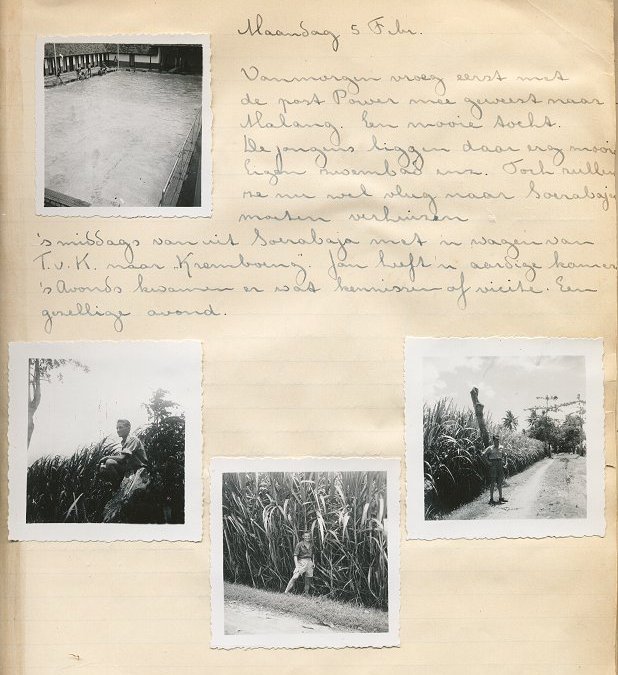 Maandag 5 Febr.
Vanmorgen vroeg eerst met
de post Power mee geweest naar
Malang. Een mooie tocht.
De jongens liggen daar erg mooi
Eigen zwembad enz. Toch zullen
ze nu wel vlug naar Soerabaja
moeten verhuizen
's middags van uit Soerabaja met 'n wagen van
T.v.K. naar "Kremboeng". Jan heeft 'n aardige kamer
's Avonds kwamen er wat kennissen of visite. Een
gezellige avond.